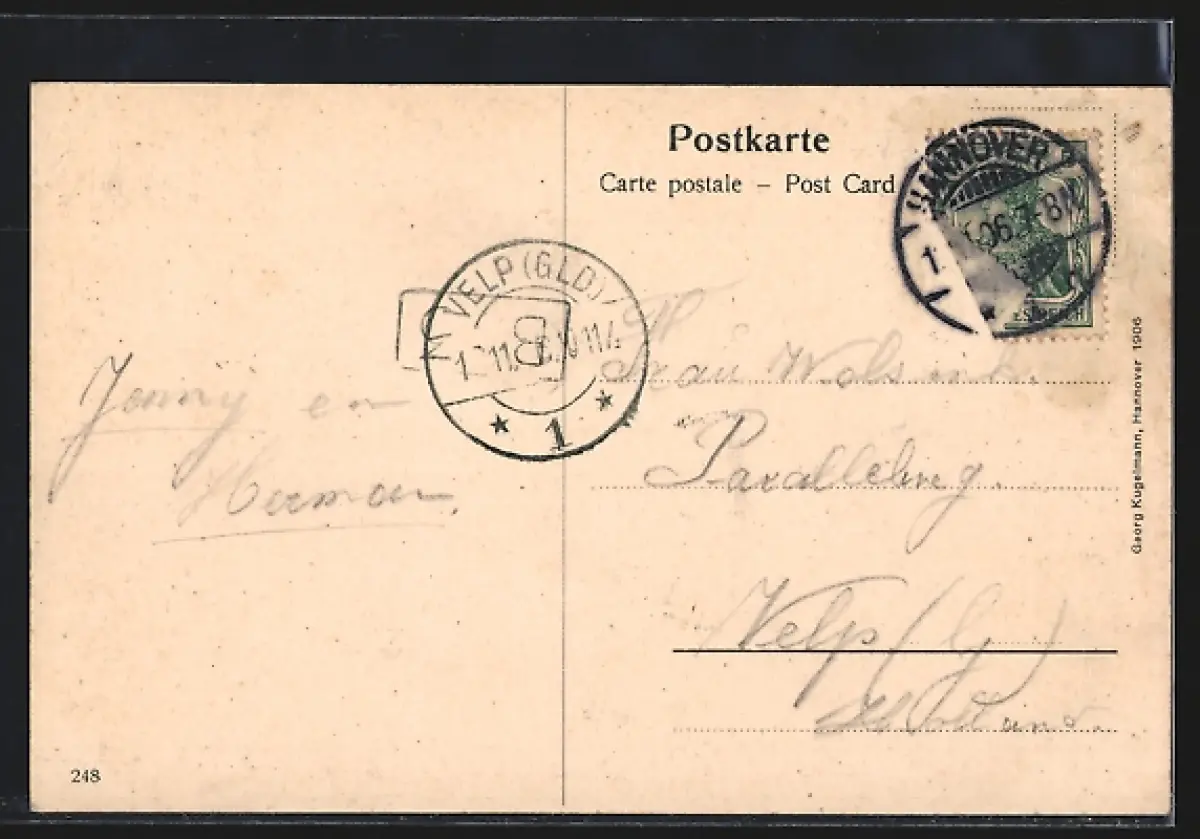 Postkarte
Carte postale – Post Card
HANNOVER
06. 7-8N
1
VELP (GLD)
11
B
1
Jenny en
Herman.
Frau Wolsink.
Velp (G)
Holland.
Georg Kugelmann, Hannover 1906
248